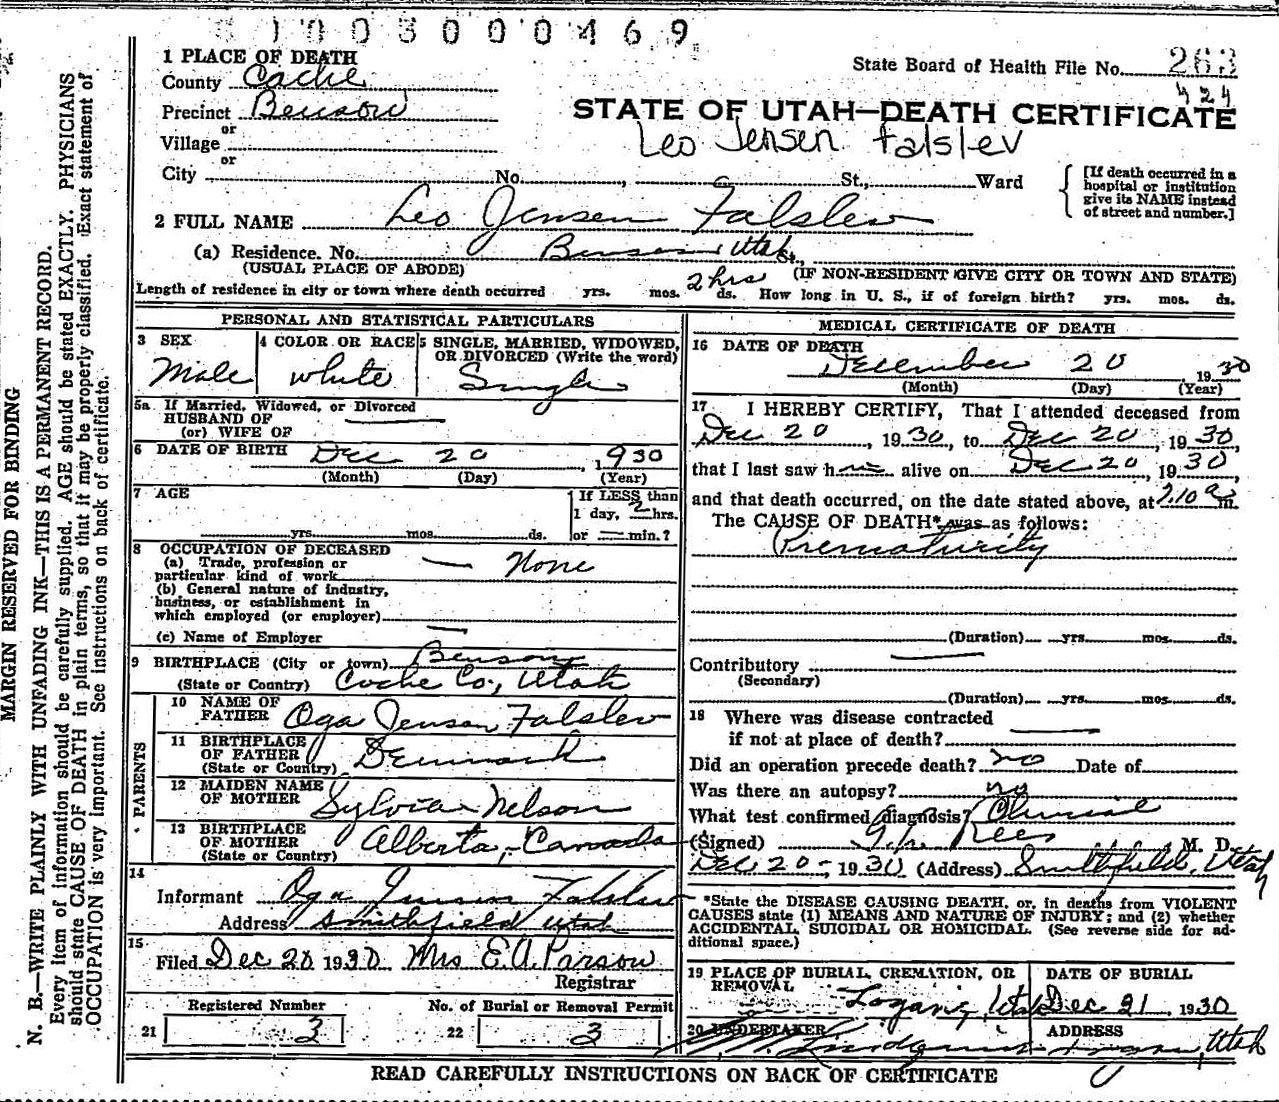 1003000469
1 PLACE OF DEATH
State Board of Health File No. 263
County Cache
424
Precinct Benson
STATE OF UTAH—DEATH CERTIFICATE
or
Leo Jensen Falslev
Village
or
City No. , St., Ward
[If death occurred in a hospital or institution give its NAME instead of street and number.]
2 FULL NAME Leo Jensen Falslev
(a) Residence. No. Benson Utah St.,
(USUAL PLACE OF ABODE) (IF NON-RESIDENT GIVE CITY OR TOWN AND STATE)
Length of residence in city or town where death occurred yrs. mos. 2 hrs ds. How long in U. S., if of foreign birth? yrs. mos. ds.
PERSONAL AND STATISTICAL PARTICULARS
3 SEX 4 COLOR OR RACE 5 SINGLE, MARRIED, WIDOWED, OR DIVORCED (Write the word)
Male White Single
5a If Married, Widowed, or Divorced
HUSBAND OF
(or) WIFE OF
6 DATE OF BIRTH Dec 20, 1930
(Month) (Day) (Year)
7 AGE
If LESS than
1 day, 2 hrs.
yrs. mos. ds. or min.?
8 OCCUPATION OF DECEASED
(a) Trade, profession or
particular kind of work None
(b) General nature of industry,
business, or establishment in
which employed (or employer)
(c) Name of Employer
9 BIRTHPLACE (City or town) Benson
(State or Country) Cache Co., Utah
PARENTS
10 NAME OF FATHER Oga Jensen Falslev
11 BIRTHPLACE OF FATHER (State or Country) Denmark
12 MAIDEN NAME OF MOTHER Sylvia Nelson
13 BIRTHPLACE OF MOTHER (State or Country) Alberta, Canada
14
Informant Oga Jensen Falslev
Address Smithfield Utah
15
Filed Dec 20 1930 Mrs E.A. Parson
Registrar
Registered Number No. of Burial or Removal Permit
21 3 22 3
MEDICAL CERTIFICATE OF DEATH
16 DATE OF DEATH
December 20 1930
(Month) (Day) (Year)
17 I HEREBY CERTIFY, That I attended deceased from
Dec 20, 1930, to Dec 20, 1930,
that I last saw h alive on Dec 20, 1930,
and that death occurred, on the date stated above, at 7.10 a m.
The CAUSE OF DEATH* was as follows:
Prematurity
(Duration) yrs. mos. ds.
Contributory
(Secondary)
(Duration) yrs. mos. ds.
18 Where was disease contracted
if not at place of death?
Did an operation precede death? no Date of
Was there an autopsy? no
What test confirmed diagnosis? Clinical
(Signed) Rees M. D.
Dec 20-, 1930 (Address) Smithfield, Utah
*State the DISEASE CAUSING DEATH, or, in deaths from VIOLENT
CAUSES state (1) MEANS AND NATURE OF INJURY; and (2) whether
ACCIDENTAL, SUICIDAL OR HOMICIDAL. (See reverse side for ad-
ditional space.)
19 PLACE OF BURIAL, CREMATION, OR REMOVAL DATE OF BURIAL
Logan, Utah Dec 21, 1930
20 UNDERTAKER ADDRESS
Logan, Utah
READ CAREFULLY INSTRUCTIONS ON BACK OF CERTIFICATE
MARGIN RESERVED FOR BINDING
N. B.—WRITE PLAINLY WITH UNFADING INK—THIS IS A PERMANENT RECORD.
Every item of information should be carefully supplied. AGE should be stated EXACTLY. PHYSICIANS
should state CAUSE OF DEATH in plain terms, so that it may be properly classified. Exact statement of
OCCUPATION is very important. See instructions on back of certificate.